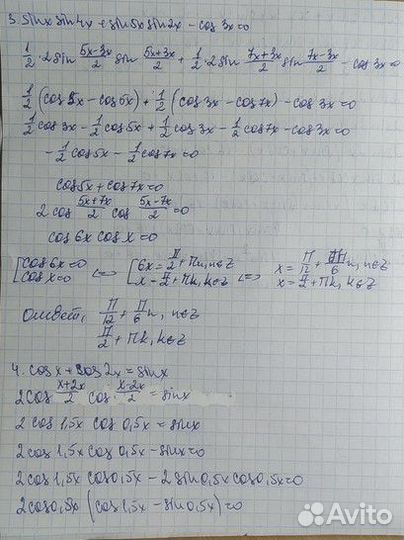 3. sinx sin4x + sin5x sin2x - cos 3x = 0
1/2 · 2 sin (5x-3x)/2 sin (5x+3x)/2 + 1/2 · 2 sin (7x+3x)/2 sin (7x-3x)/2 - cos 3x = 0
1/2 (cos 3x - cos 5x) + 1/2 (cos 3x - cos 7x) - cos 3x = 0
1/2 cos 3x - 1/2 cos 5x + 1/2 cos 3x - 1/2 cos 7x - cos 3x = 0
- 1/2 cos 5x - 1/2 cos 7x = 0
cos 5x + cos 7x = 0
2 cos (5x+7x)/2 cos (5x-7x)/2 = 0
cos 6x cos x = 0
[cos 6x = 0 cos x = 0 <=> [6x = П/2 + Пn, n∈Z x = П/2 + Пk, k∈Z <=> x = П/12 + П/6 n, n∈Z x = П/2 + Пk, k∈Z
Ответ: П/12 + П/6 n, n∈Z
П/2 + Пk, k∈Z
4. cos x + cos 2x = sin x
2 cos (x+2x)/2 cos (x-2x)/2 = sin x
2 cos 1,5x cos 0,5x = sin x
2 cos 1,5x cos 0,5x - sin x = 0
2 cos 1,5x cos 0,5x - 2 sin 0,5x cos 0,5x = 0
2 cos 0,5x (cos 1,5x - sin 0,5x) = 0
Avito